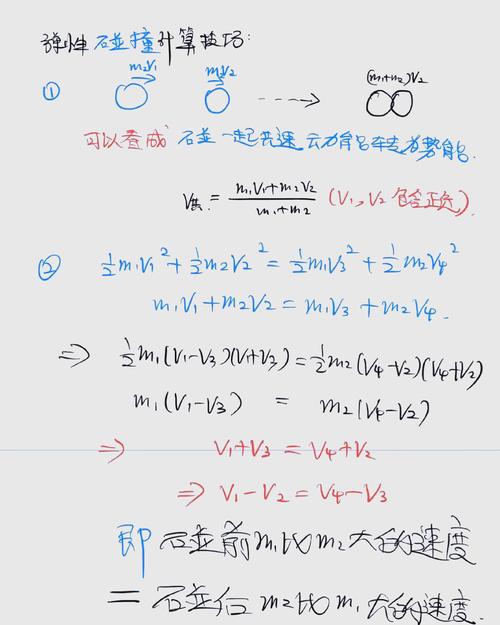 弹性碰撞计算技巧:
① m₂V₁ m₂V₂ ----> (m₁+m₂)V₂
可以看成 碰一起共速 动能转为势能.
V共 = (m₁V₁+m₂V₂)/(m₁+m₂) (V₁, V₂ 包含正负).
② ½m₁V₁² + ½m₂V₂² = ½m₁V₃² + ½m₂V₄²
m₁V₁ + m₂V₂ = m₁V₃ + m₂V₄.
⇒ ½m₁(V₁-V₃)(V₁+V₃) = ½m₂(V₄-V₂)(V₄+V₂)
m₁(V₁-V₃) = m₂(V₄-V₂)
⇒ V₁+V₃ = V₄+V₂
⇒ V₁-V₂ = V₄-V₃
即 碰前m₁比m₂大的速度
= 碰后m₂比m₁大的速度.